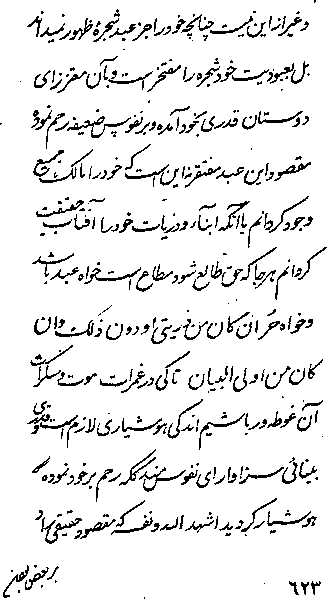 و غیر از این نیست چنانچه خود را جز عبد شجرهٔ ظهور ندیده‌ام
بل بعبودیت خود شجره را مفتخر است و بآن معزز ای
دوستان قدری بخود آمده و بر نفوس ضعیفه رحم نموده
مقصود این عبد مفتقر نه این است که خود را مالک جمیع
وجود گردانم یا آنکه ابناء و ذریات خود را آفتاب حقیقت
گردانم هر جا که حق طالع شود مطاع است خواه عبد باشد
و خواه حر ان کان من ذریتی او دون ذلک و ان
کان من اولی البیان تا کی در غمرات موت و سکرات
آن غوطه‌ور باشیم اندکی هوشیاری لازم است و قدری
بینائی سزاوار ای نفوس منهمکه رحم بر خود نموده
هوشیار گردید اشهد الله و نفسه که مقصود حقیقی
بر بعض یقین
۶۲۳